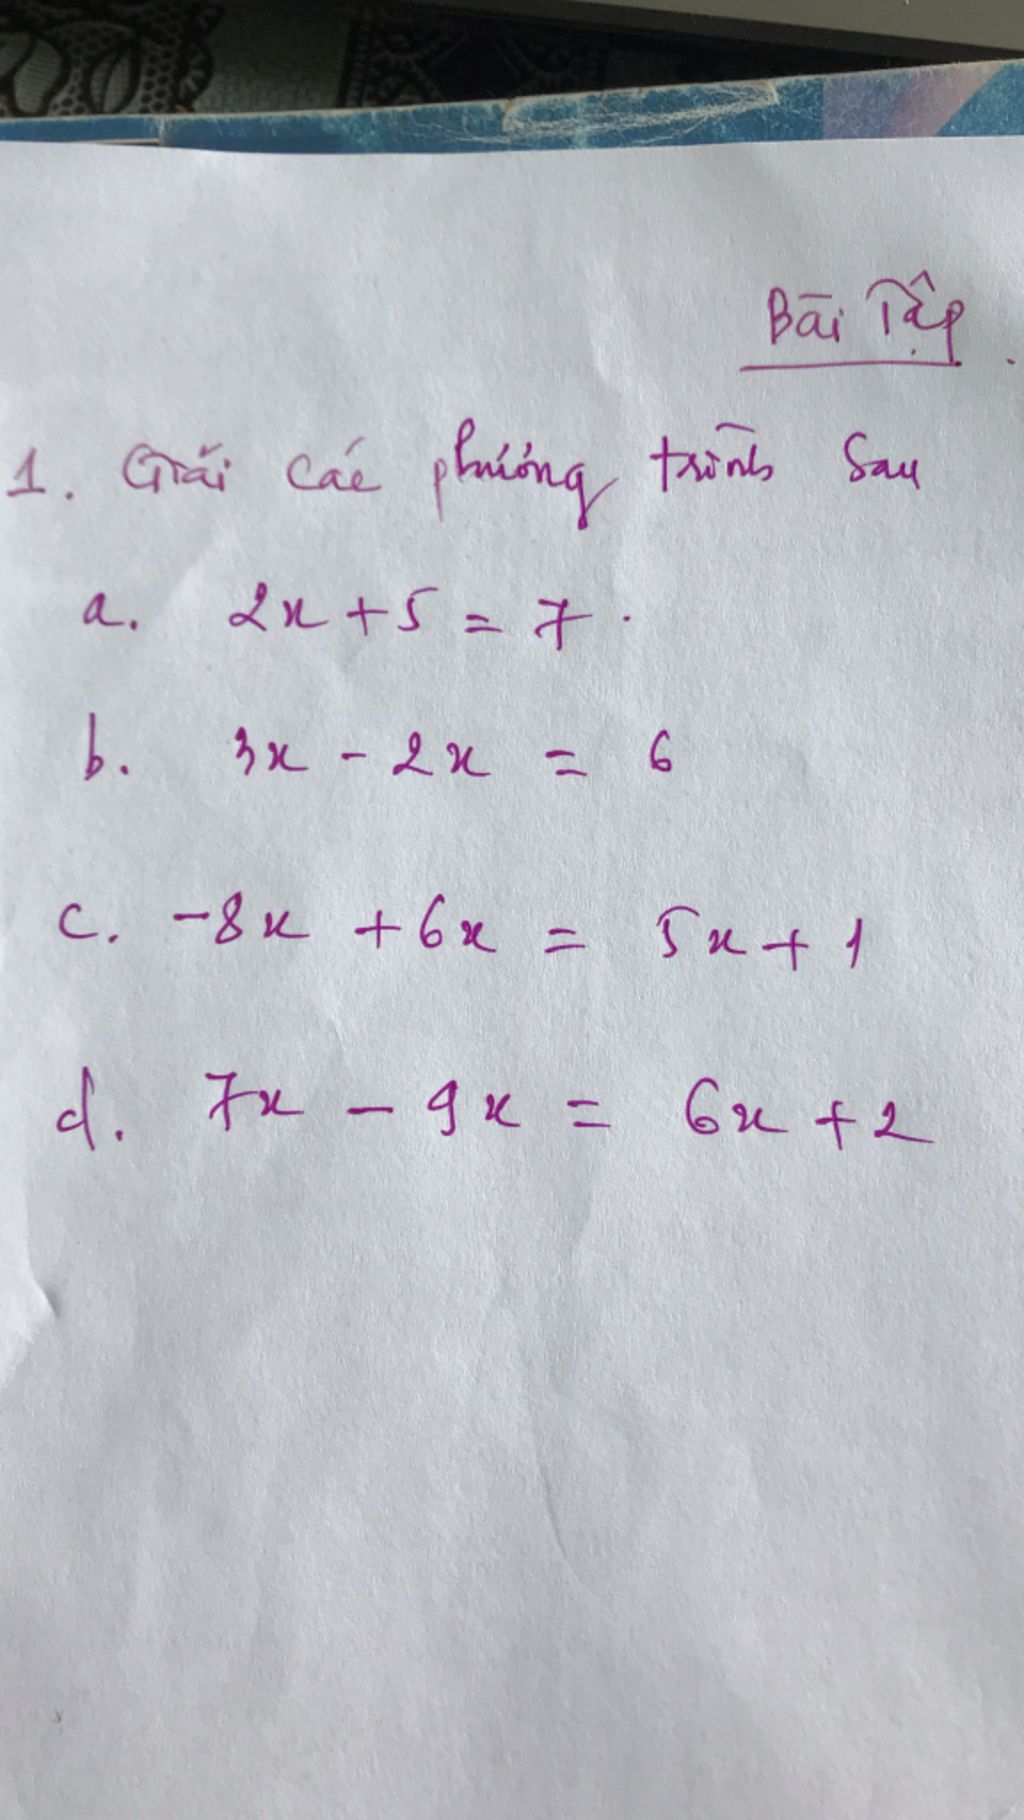 Bài Tập.
1. Giải các phương trình sau
a. 2x + 5 = 7.
b. 3x - 2x = 6
c. -8x + 6x = 5x + 1
d. 7x - 9x = 6x + 2